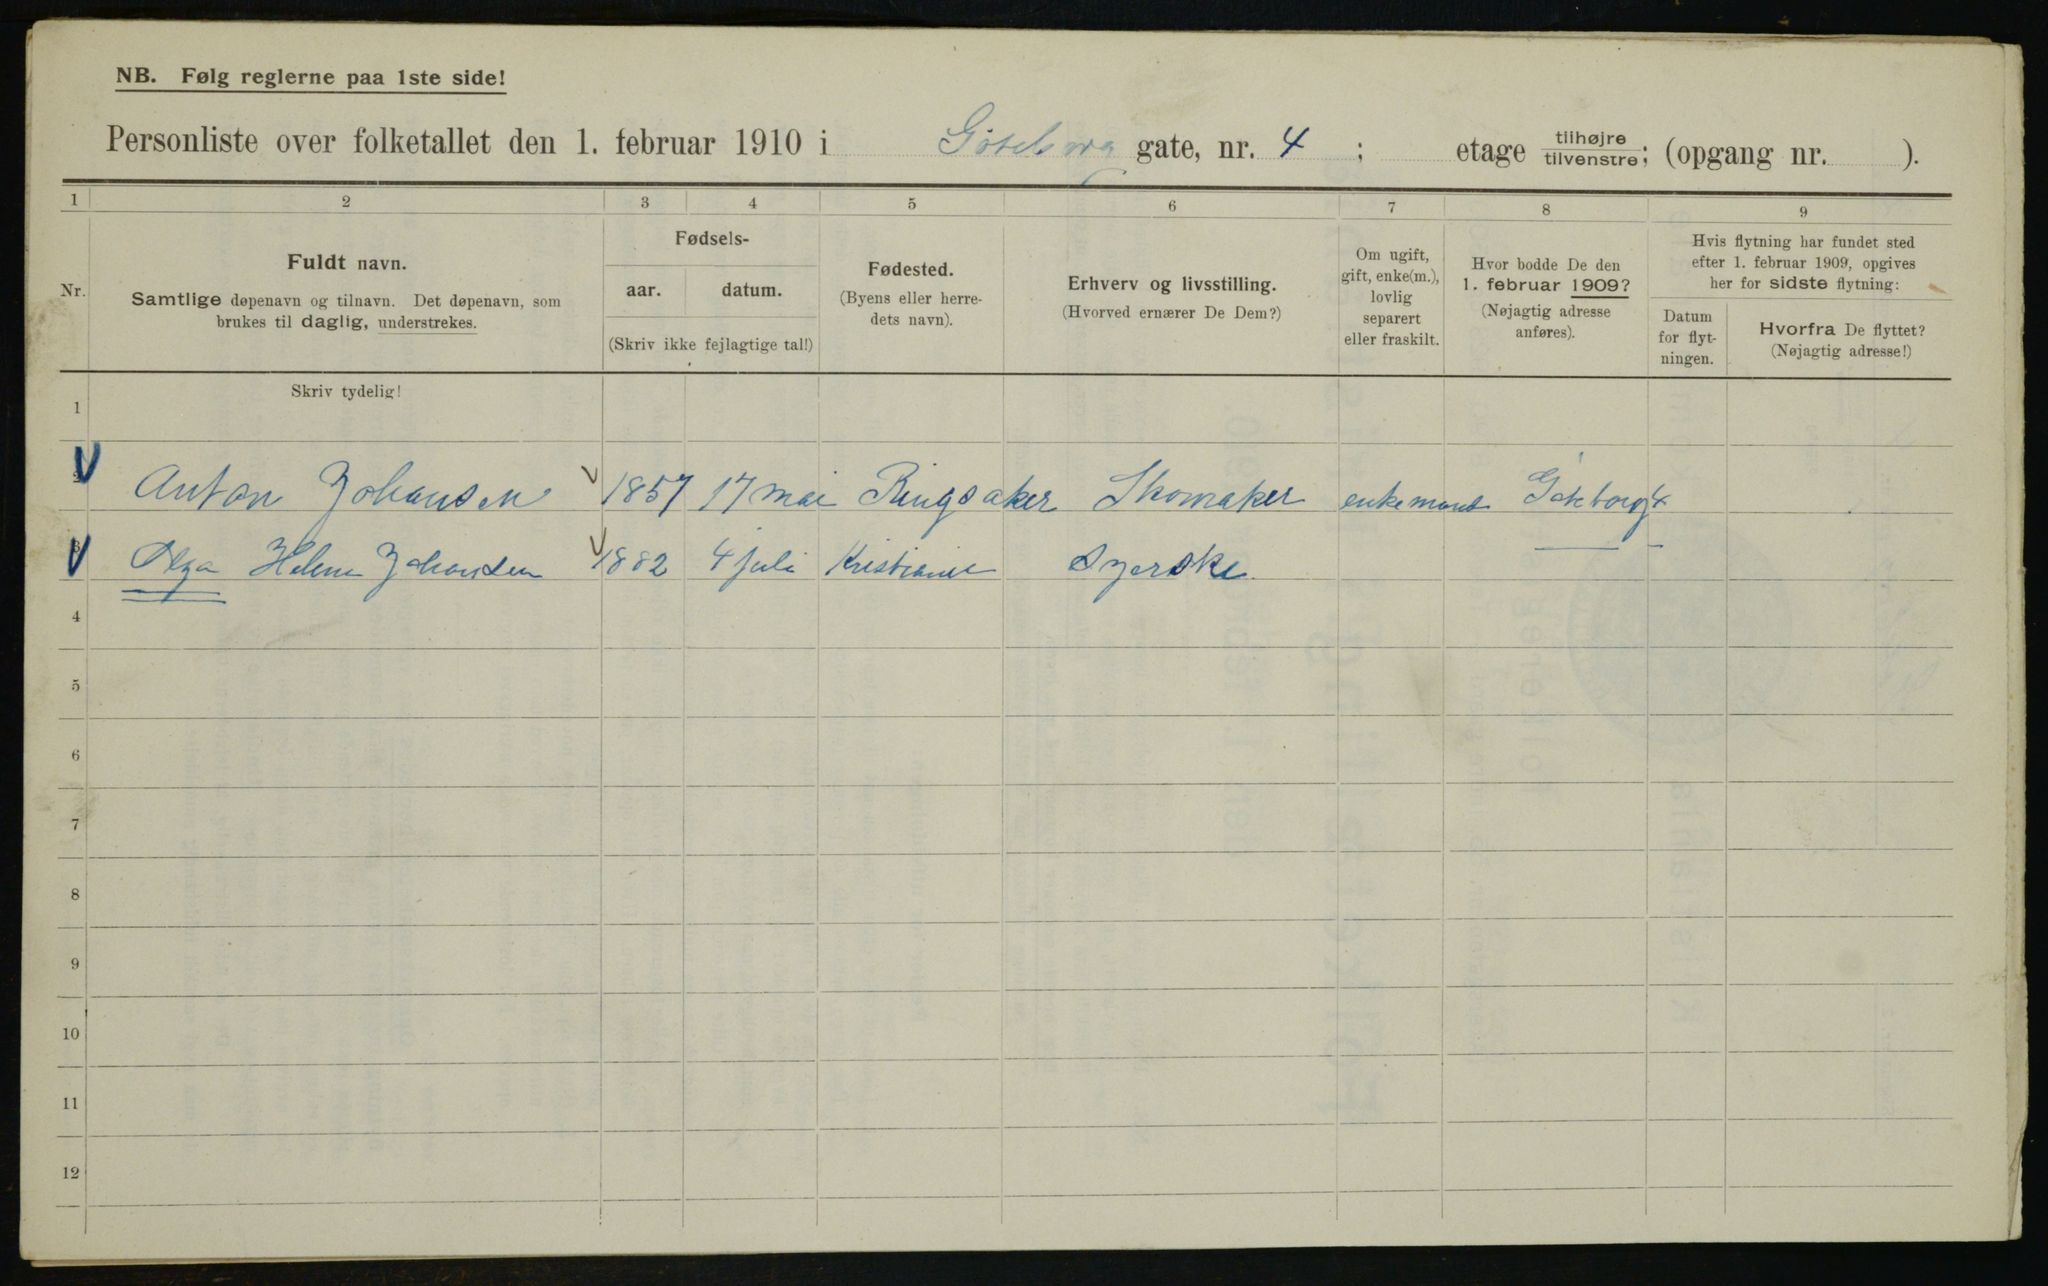 NB. Følg reglerne paa 1ste side!
Personliste over folketallet den 1. februar 1910 i Göteborg gate, nr. 4 ; etage tilhøjre/tilvenstre; (opgang nr. ).
1 2 3 4 5 6 7 8 9
Nr.
Fuldt navn.
Samtlige døpenavn og tilnavn. Det døpenavn, som
brukes til daglig, understrekes.
Skriv tydelig!
Fødsels-
aar. datum.
(Skriv ikke fejlagtige tal!)
Fødested.
(Byens eller herre-
dets navn).
Erhverv og livsstilling.
(Hvorved ernærer De Dem?)
Om ugift,
gift, enke(m.),
lovlig
separert
eller fraskilt.
Hvor bodde De den
1. februar 1909?
(Nøjagtig adresse
anføres).
Hvis flytning har fundet sted
efter 1. februar 1909, opgives
her for sidste flytning:
Datum
for flyt-
ningen.
Hvorfra De flyttet?
(Nøjagtig adresse!)
1
2 Anton Johansen 1857 17 mai Ringsaker Skomaker enkemand Göteborg 4
3 Olga Helene Johansen 1882 4 juli Kristiania Syerske
4
5
6
7
8
9
10
11
12